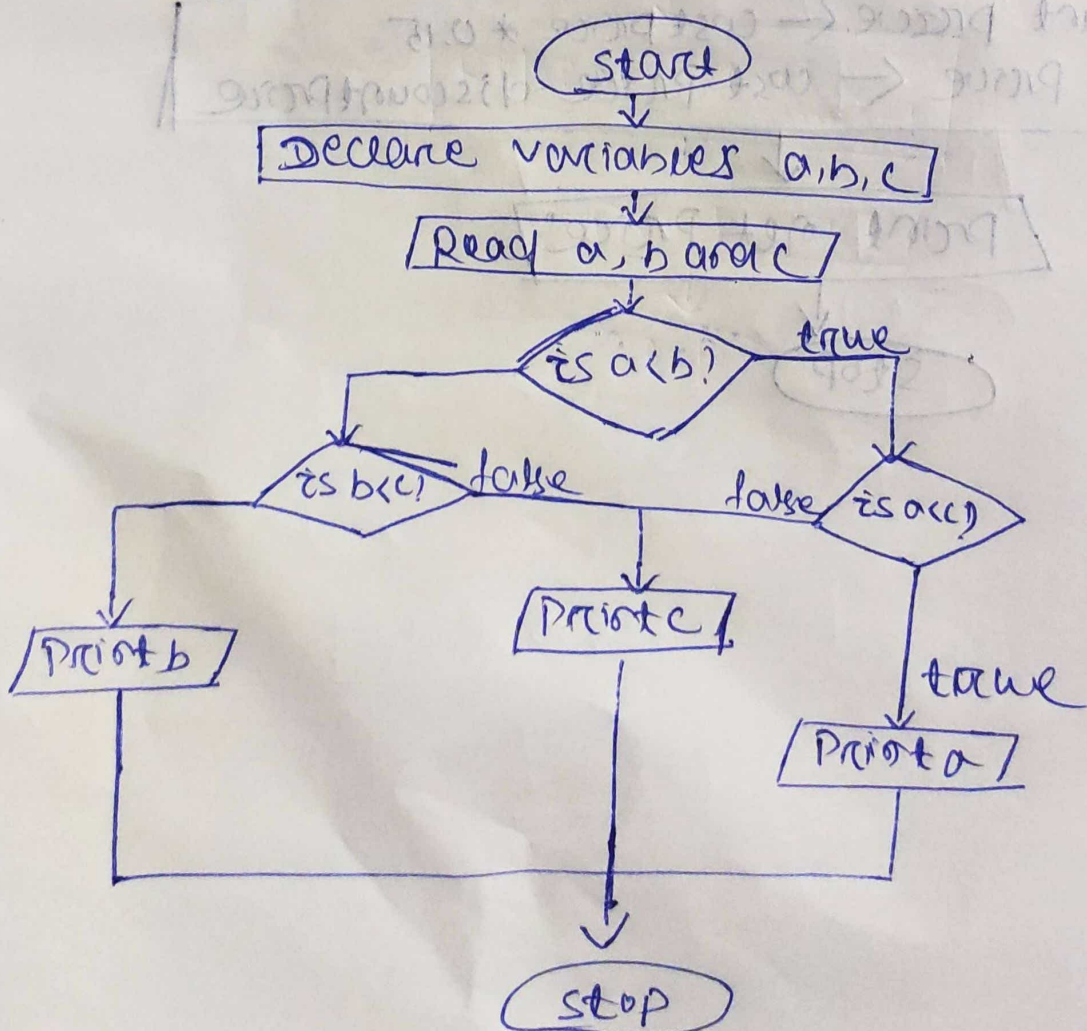 start
Declare variables a,b,c
Read a, b and c
is a<b?
true
is b<c?
false
false
is a<c?
Print b
Print c
true
Print a
stop